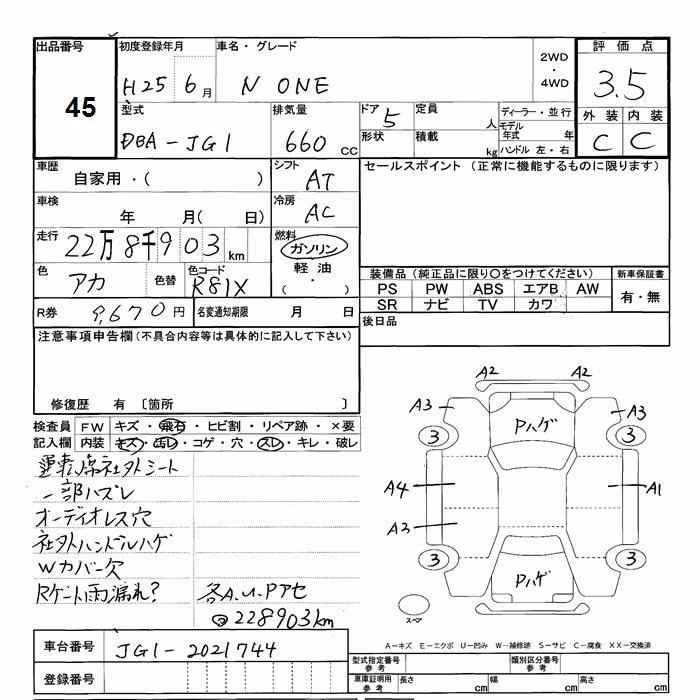 出品番号 初度登録年月 車名・グレード 2WD ・ 4WD 評価点
45 H25 6月 N ONE 3.5
型式 排気量 ドア 5 定員 人 ディーラー・並行 外装 内装
DBA-JG1 660 CC 形状 積載 kg モデル年式 年 ハンドル 左・右 C C
車歴 自家用・( ) シフト AT セールスポイント (正常に機能するものに限ります)
車検 年 月( 日) 冷房 AC
走行 22万8千903 km 燃料 ガソリン
色 アカ 色替 色コード R81X 軽油 ・ ( )
装備品 (純正品に限り○をつけてください) 新車保証書
PS PW ABS エアB AW 有・無
SR ナビ TV カワ
R券 9,670円 名変通知期限 月 日 後日品
注意事項申告欄 (不具合内容等は具体的に記入して下さい)
修復歴 有 〔箇所 〕
検査員 FW キズ・飛石・ヒビ割・リペア跡・×要
記入欄 内装 キズ・汚レ・コゲ・穴・スレ・キレ・破レ
運転席社外シート
一部ハズレ
オーディオレス穴
社外ハンドルハゲ
Wカバー欠
Rゲート雨漏れ? 各A.U.Pアセ
228903km
A2 A2
A3 Pハゲ A3
3 3
A4 A1
A3
3 Pハゲ 3
スペア
A-キズ E-エクボ U-凹み W-補修跡 S-サビ C-腐食 XX-交換済
車台番号 JG1-2021744
登録番号
型式指定番号 参考 類別区分番号 参考
車庫証明用 参考 長さ cm 幅 cm 高さ cm